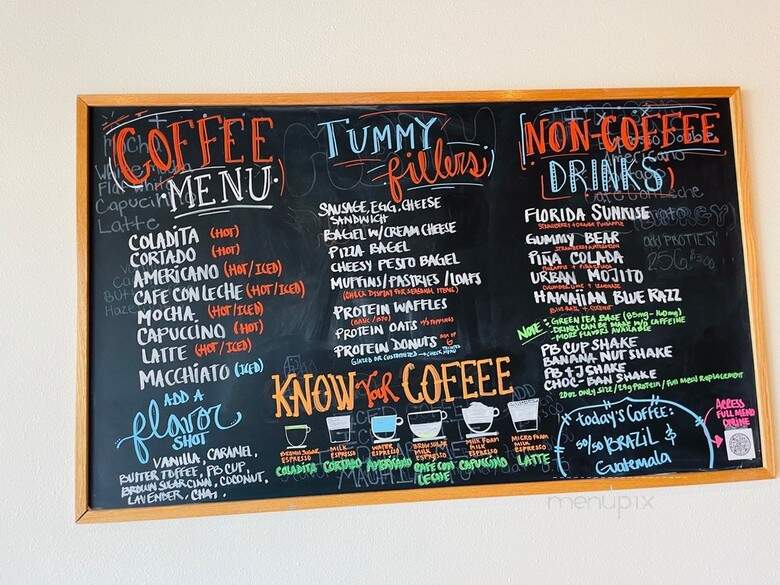 COFFEE
MENU
COLADITA (HOT)
CORTADO (HOT)
AMERICANO (HOT/ICED)
CAFE CON LECHE (HOT/ICED)
MOCHA (HOT/ICED)
CAPUCCINO (HOT)
LATTE (HOT/ICED)
MACCHIATO (ICED)
ADD A
flavor
SHOT
VANILLA, CARAMEL,
BUTTER TOFFEE, PB CUP,
BROWN SUGAR CINN, COCONUT,
LAVENDER, CHAI,
TUMMY
fillers
SAUSAGE, EGG, CHEESE
SANDWICH
BAGEL W/CREAM CHEESE
PIZZA BAGEL
CHEESY PESTO BAGEL
MUFFINS/PASTRIES/LOAFS
(CHECK DISPLAY FOR SEASONAL ITEMS)
PROTEIN WAFFLES
PROTEIN OATS
PROTEIN DONUTS
GLAZED OR CUSTOMIZED → CHECK MENU
KNOW YOUR COFEEE
BROWN SUGAR
ESPRESSO
COLADITA
MILK
ESPRESSO
CORTADO
WATER
ESPRESSO
AMERICANO
BROWN SUGAR
MILK
ESPRESSO
CAFE CON
LECHE
MILK FOAM
MILK
ESPRESSO
CAPUCCINO
MICRO FOAM
MILK
ESPRESSO
LATTE
NON-COFFEE
DRINKS
FLORIDA SUNRISE
GUMMY BEAR
PIÑA COLADA
URBAN MOJITO
HAWAIIAN BLUE RAZZ
NOTE: -GREEN TEA BASE (85mg-160mg)
-DRINKS CAN BE MADE W/O CAFFEINE
-MORE FLAVORS AVAILABLE
PB CUP SHAKE
BANANA NUT SHAKE
PB + J SHAKE
CHOC-BAN SHAKE
20oz ONLY SIZE/24g Protein/Full Meal Replacement
today's COFFEE:
50/50 BRAZIL &
Guatemala
ACCESS
FULL MENU
ONLINE
menupix